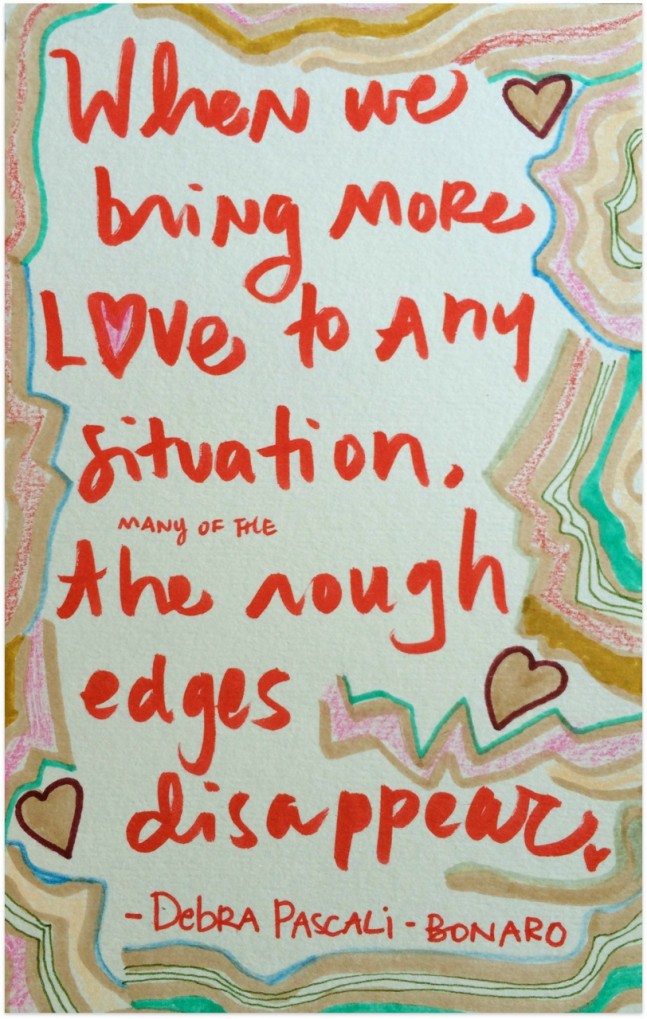 When we
bring more
Love to Any
situation,
MANY OF THE
the rough
edges
disappear.
- Debra Pascali - Bonaro